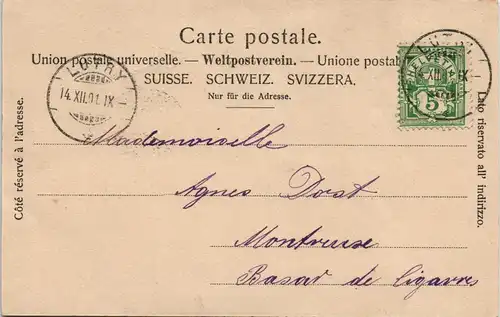 Carte postale.
Union postale universelle. — Weltpostverein. — Unione postal
SUISSE. SCHWEIZ. SVIZZERA.
Nur für die Adresse.
Côté réservé à l'adresse.
Lato riservato all' indirizzo.
LUTRY
14.XII.01.IX
HELVETIA
5
LUTRY
XII.
IX
Mademoiselle
Agnes Dost
Montreuse
Basar de Cigarres